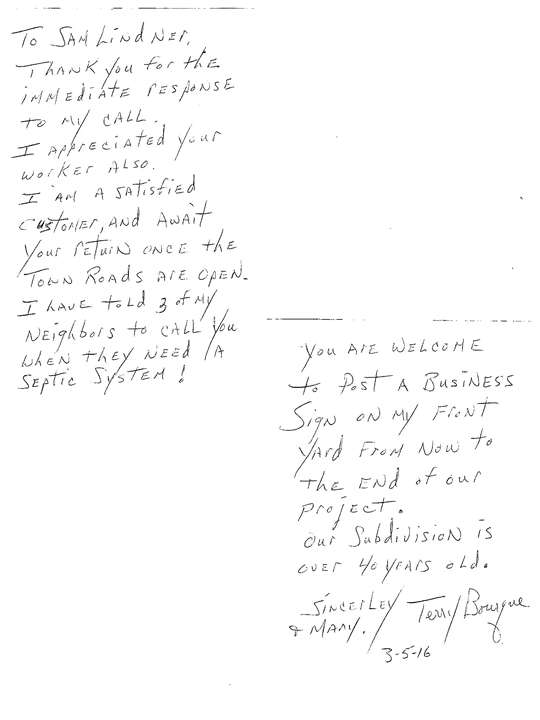 To Sam Lindner,
Thank you for the
immediate response
to my call.
I appreciated your
worker also.
I am a satisfied
customer, and await
your return once the
Town Roads are open.
I have told 3 of my
neighbors to call you
when they need a
septic system!
You are welcome
to post a business
sign on my front
yard from now to
the end of our
project.
Our subdivision is
over 40 years old.
Sincerley Terry Bourque
& Mary.
3-5-16